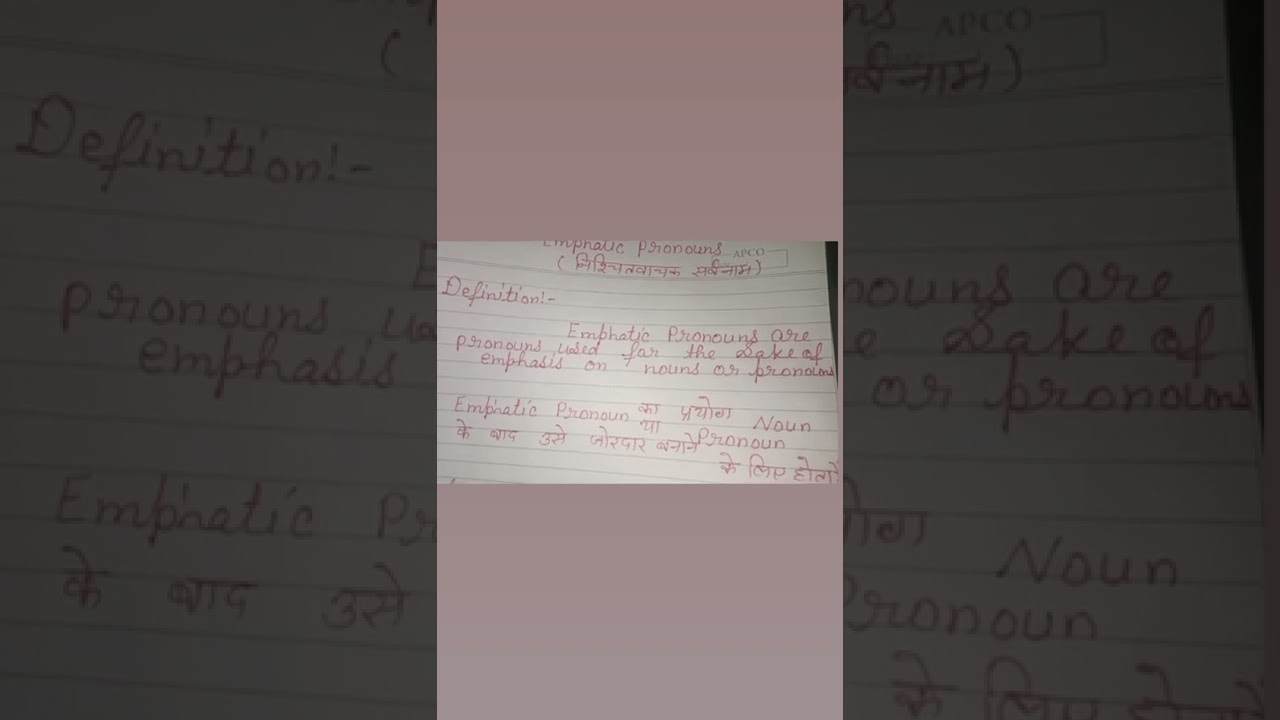 Emphatic Pronouns APCO
(निश्चितवाचक सर्वनाम)
Definition:-
Emphatic Pronouns are
pronouns used for the sake of
emphasis on nouns or pronouns
Emphatic Pronoun का प्रयोग Noun
या Pronoun
के बाद उसे जोरदार बनाने
के लिए होता